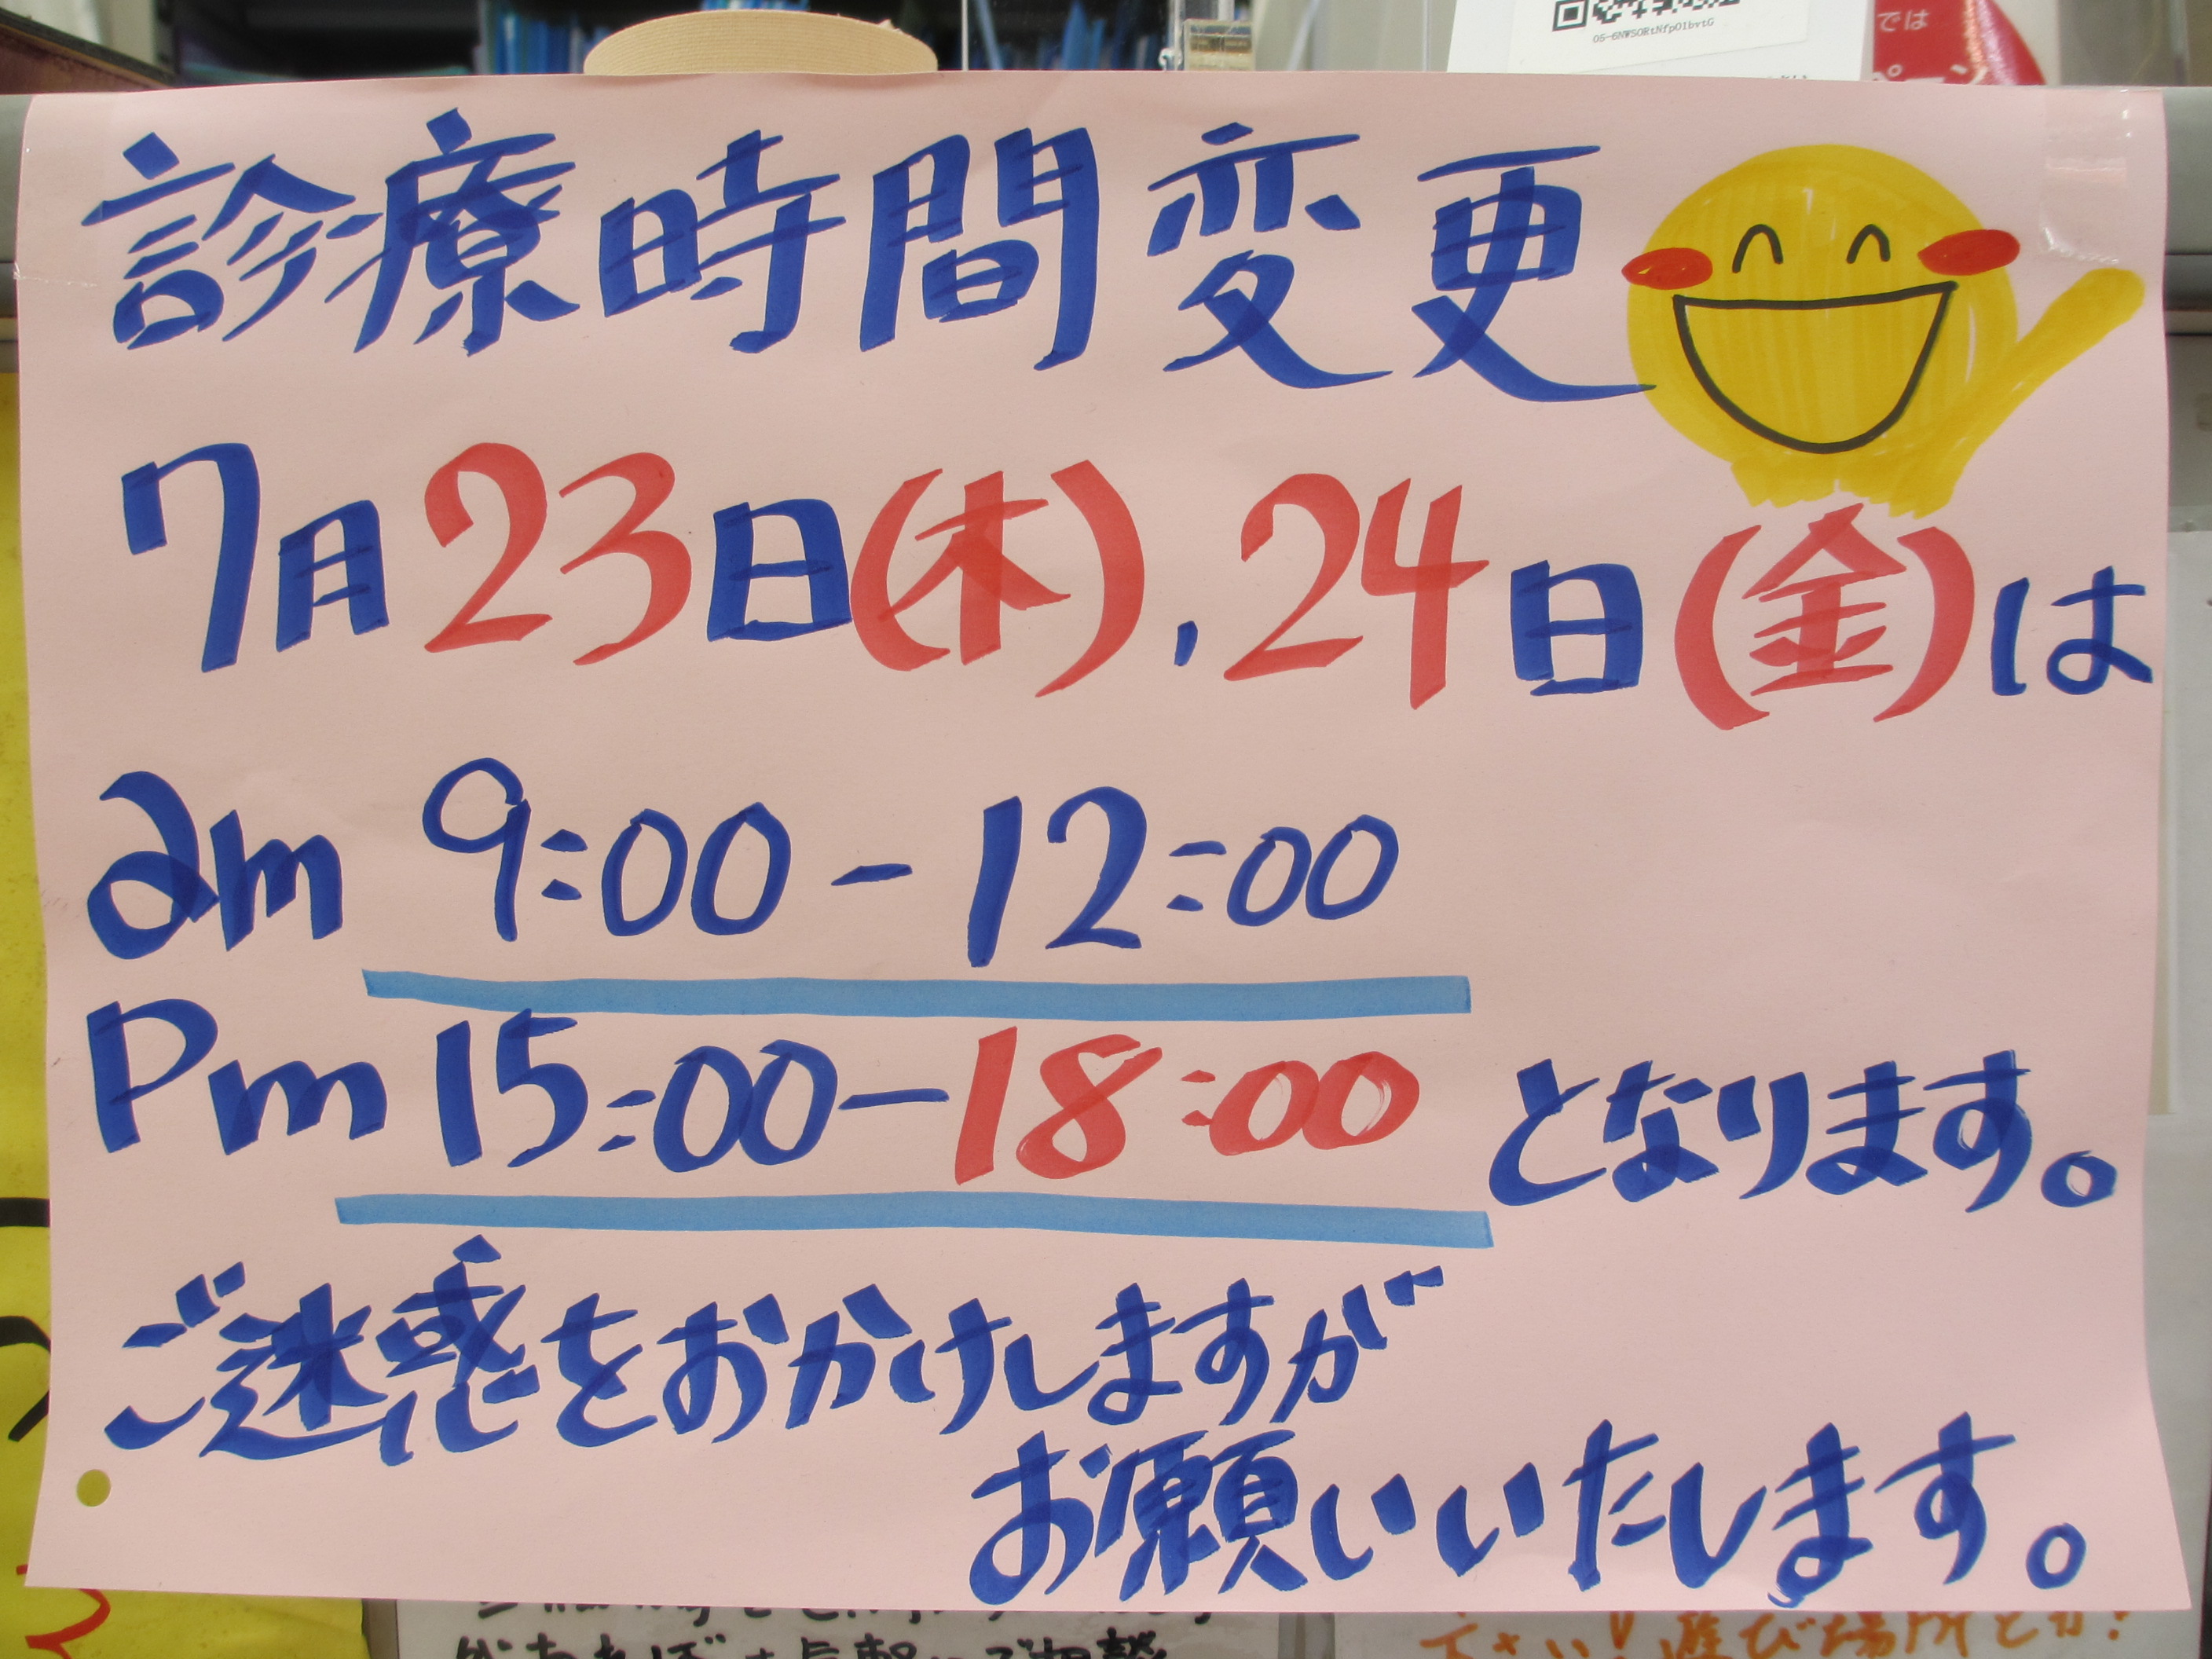 05-6NWSORtNfpO1bvtG
では
診療時間変更
7月23日(木),24日(金)は
am 9:00-12:00
Pm 15:00-18:00 となります。
ご迷惑をおかけしますが
お願いいたします。
下さい!遊び場所とか!